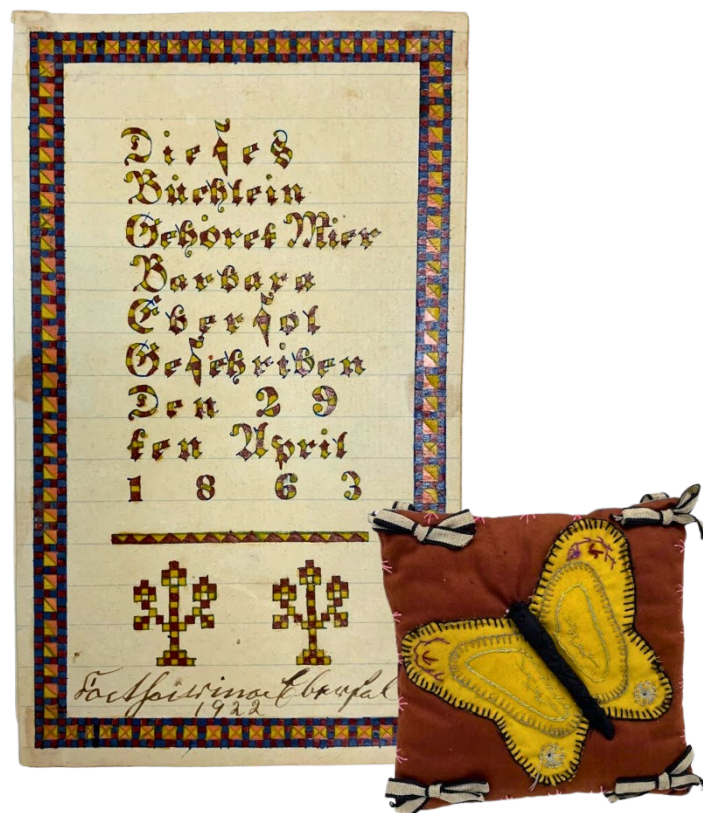 Dieses
Büchlein
Gehöret Mier
Barbara
Ebersol
Geschriben
Den 29
ten April
1863
Ebersol
1922